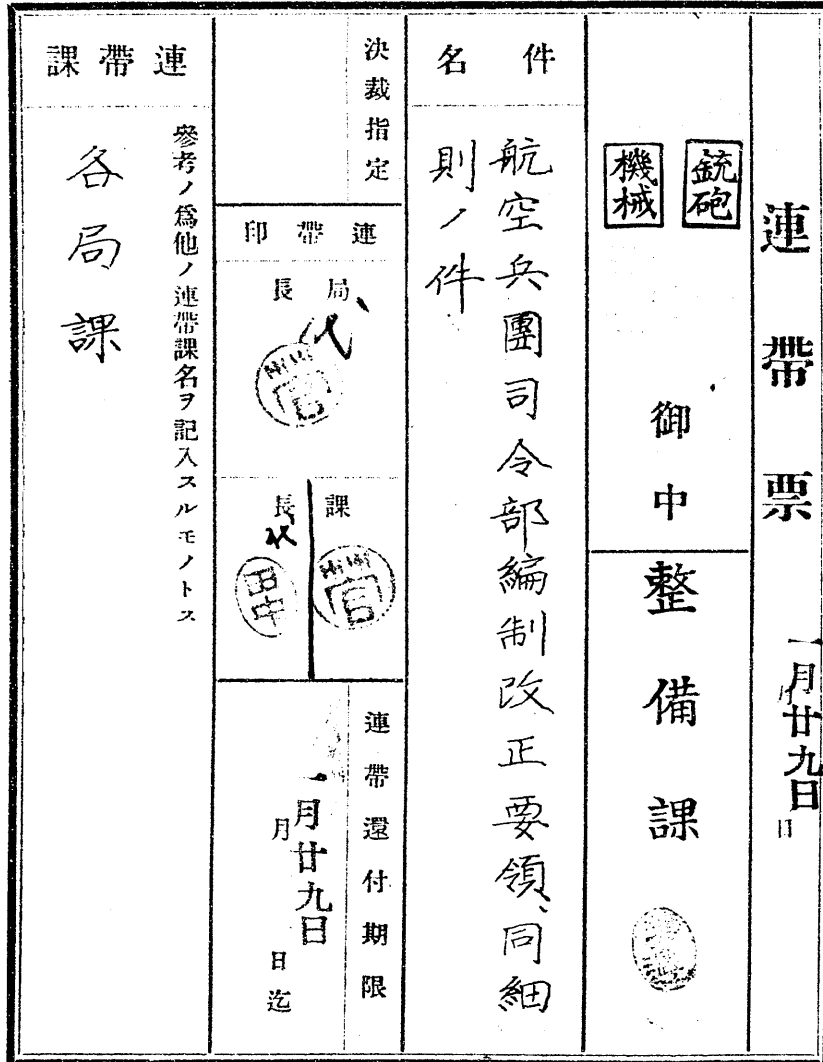 連帶票
一月廿九日
月 日
銃砲
機械
御中
整備課
件名
航空兵團司令部編制改正要領、同細
則ノ件
決裁指定
連帶印
局長
代
官
課長
官
代
田中
連帶還付期限
一月廿九日
月 日迄
連帶課
參考ノ爲他ノ連帶課名ヲ記入スルモノトス
各局課